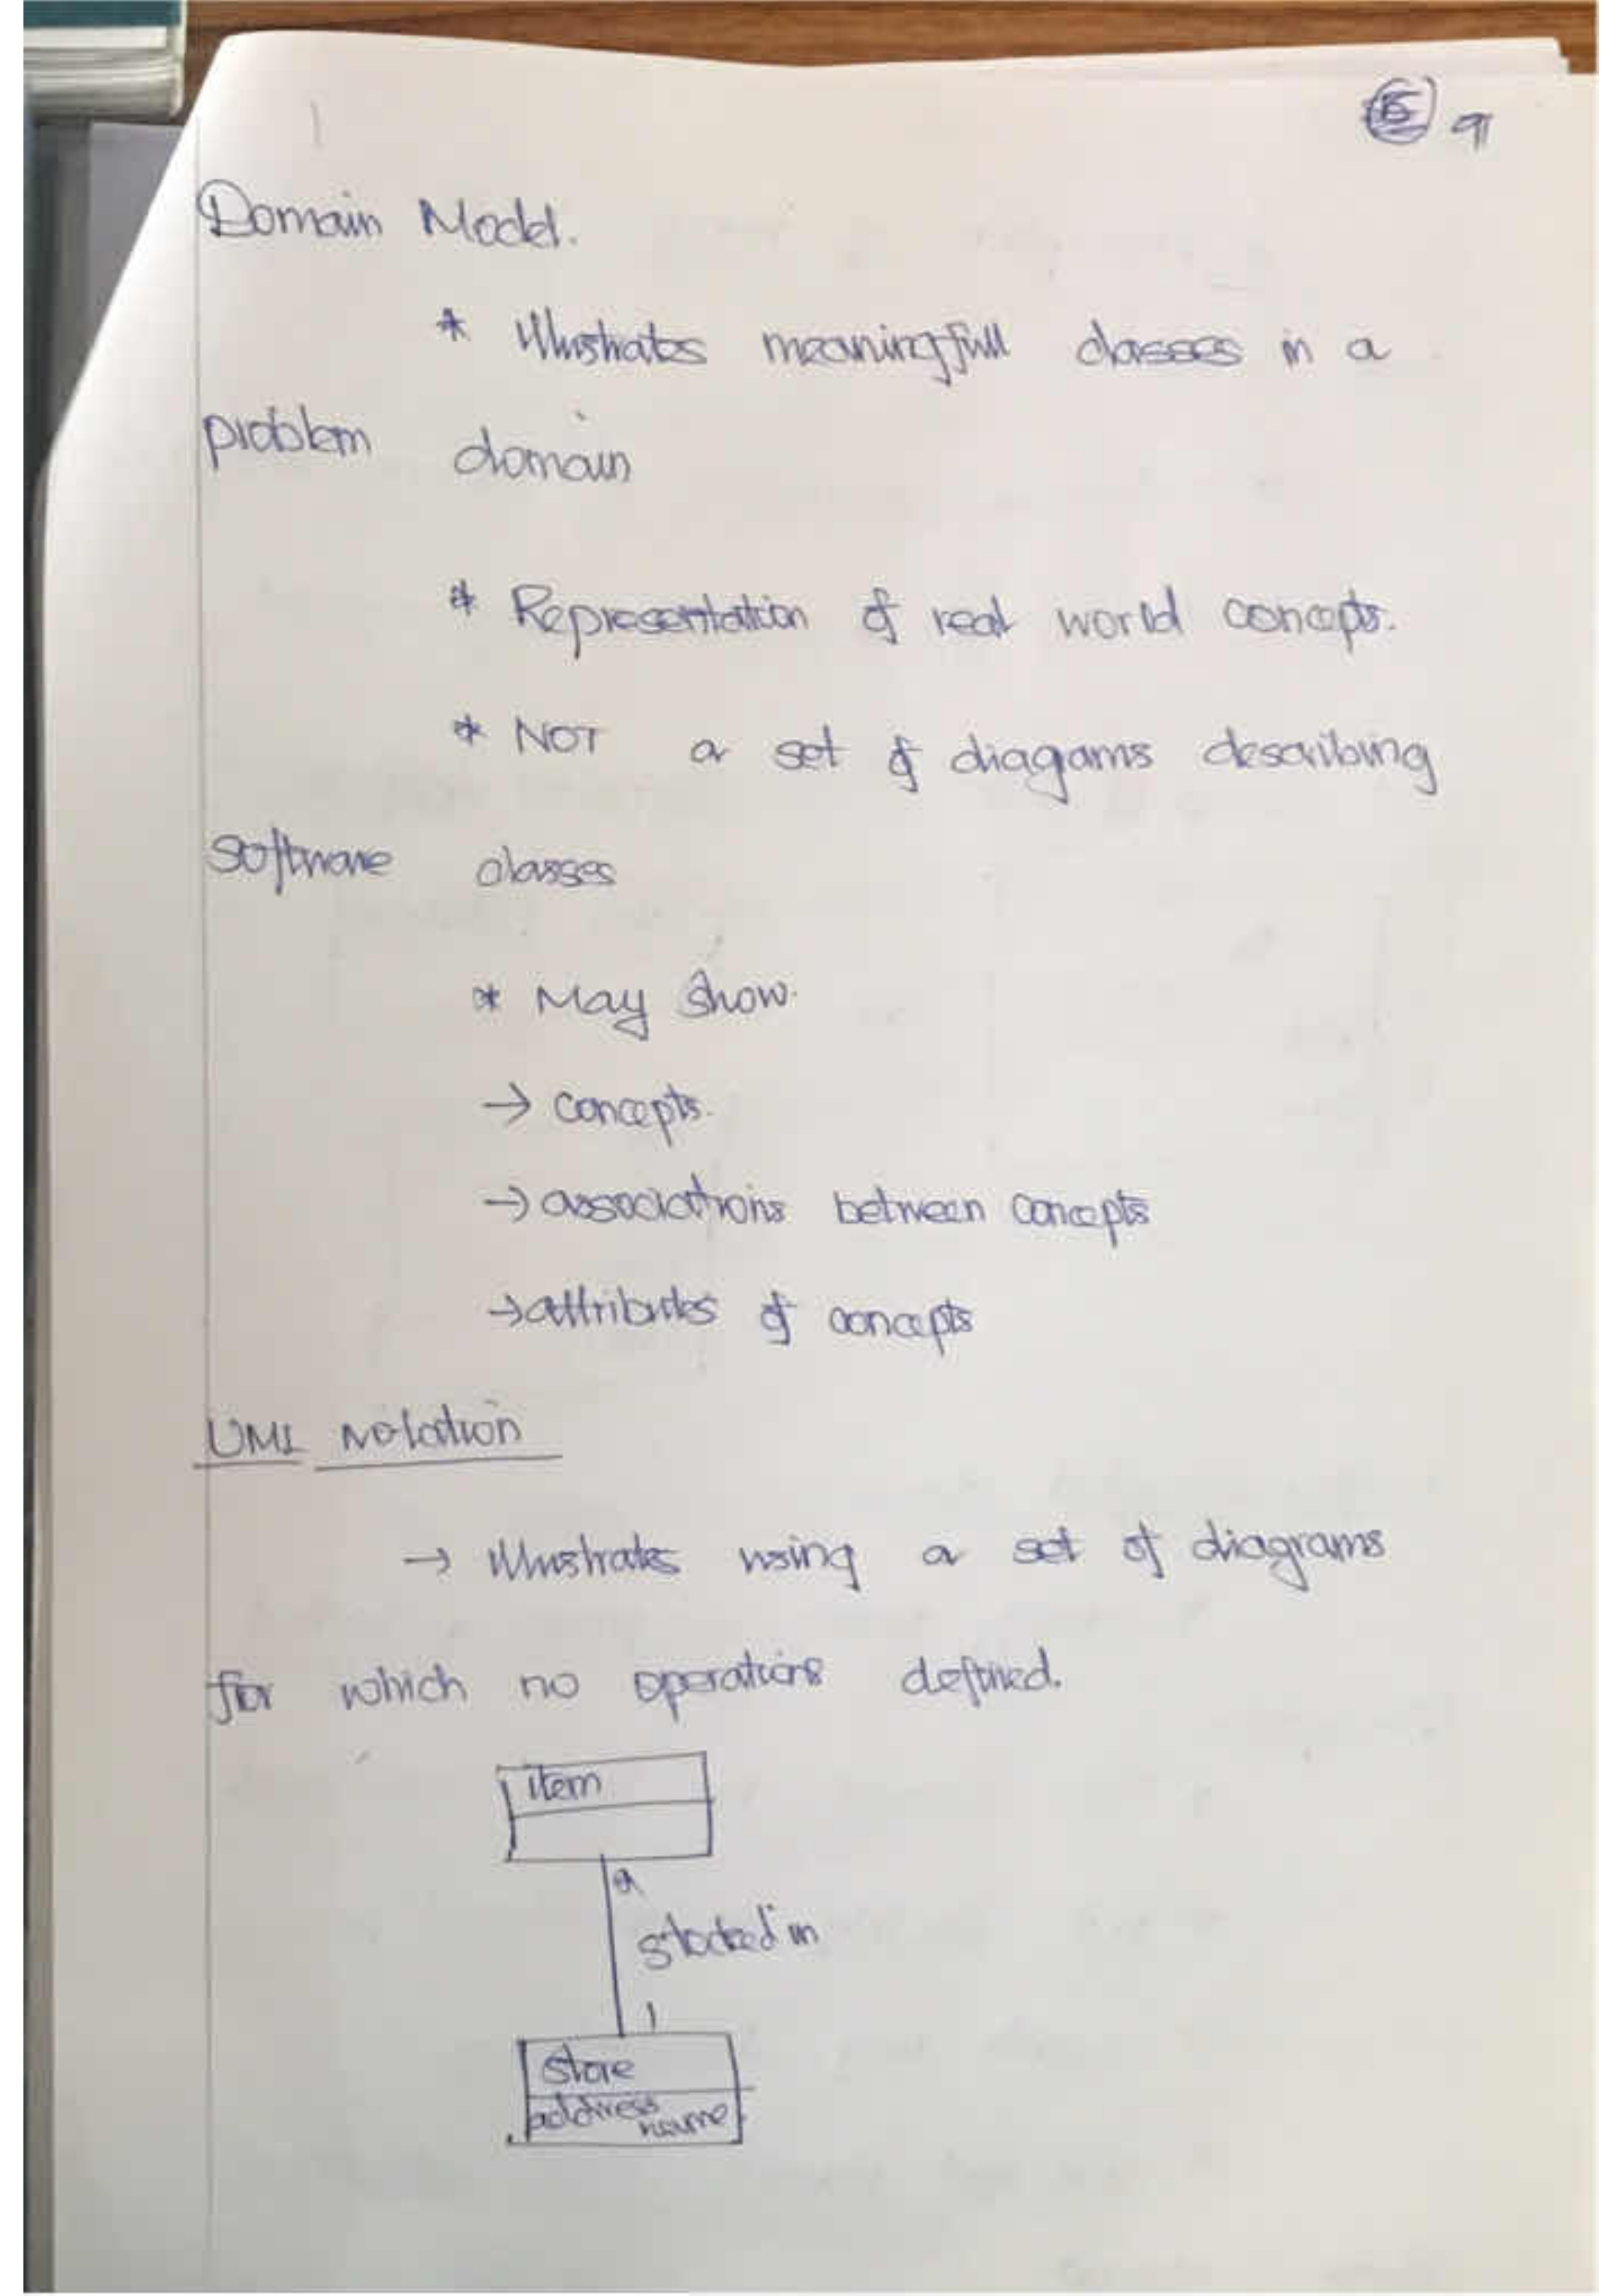 15 9
Domain Model.
* Illustrates meaningfull classes in a
problem domain
* Representation of real world concepts.
* NOT a set of diagams describing
software classes
* May show.
→ concepts.
→ associations between concepts
→ attributes of concepts
UML Notation
→ Illustrates using a set of diagrams
for which no operations defined.
item
*
stocked in
1
store
address
name